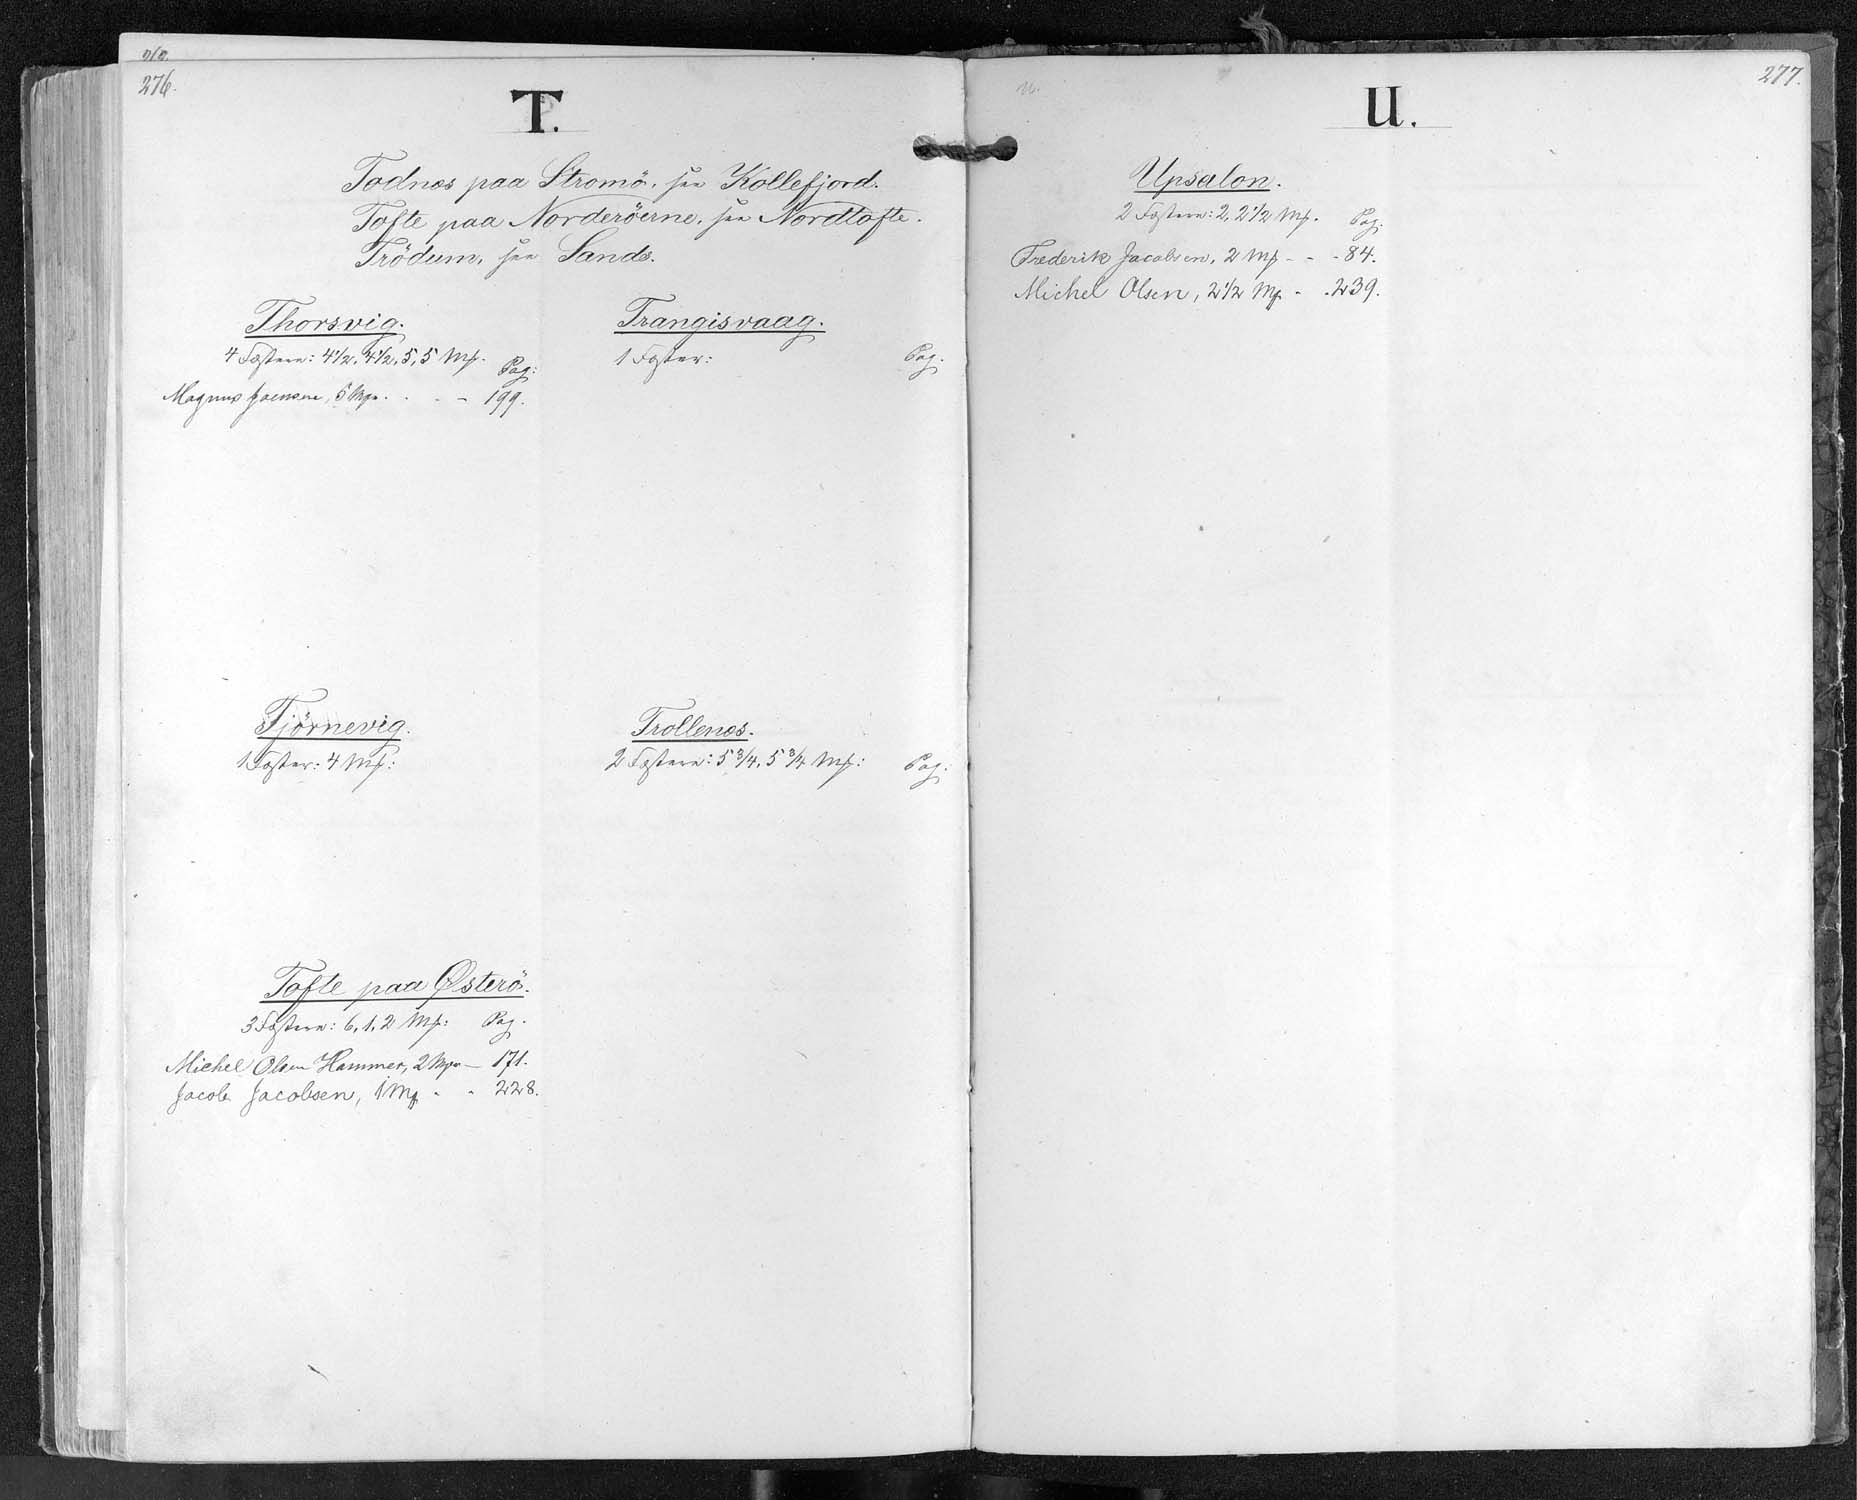 276.
T.
Todnæs paa Stromö, see Kollefjord.
Tofte paa Norderöerne, see Nordtofte.
Trödum, see Sande.
Thorsvig.
4 Fæstere: 4 1/2, 4 1/2, 5, 5 Mk. Pag:
Magnus Joensen, 5 Mk. . . . - 199.
Tjörnevig.
1 Fæster: 4 Mk:
Tofte paa Østerö.
3 Fæstere: 6, 1, 2 Mk: Pag.
Michel Olsen Hammer, 2 Mk - 171.
Jacob Jacobsen, 1 Mk - - 228.
Trangisvaag.
1 Fæster: Pag.
Trollenæs.
2 Fæstere: 5 3/4, 5 3/4 Mk: Pag:
277.
U.
Upsalon.
2 Fæstere: 2, 2 1/2 Mk. Pag.
Frederik Jacobsen, 2 Mk - - - 84.
Michel Olsen, 2 1/2 Mk - . 239.